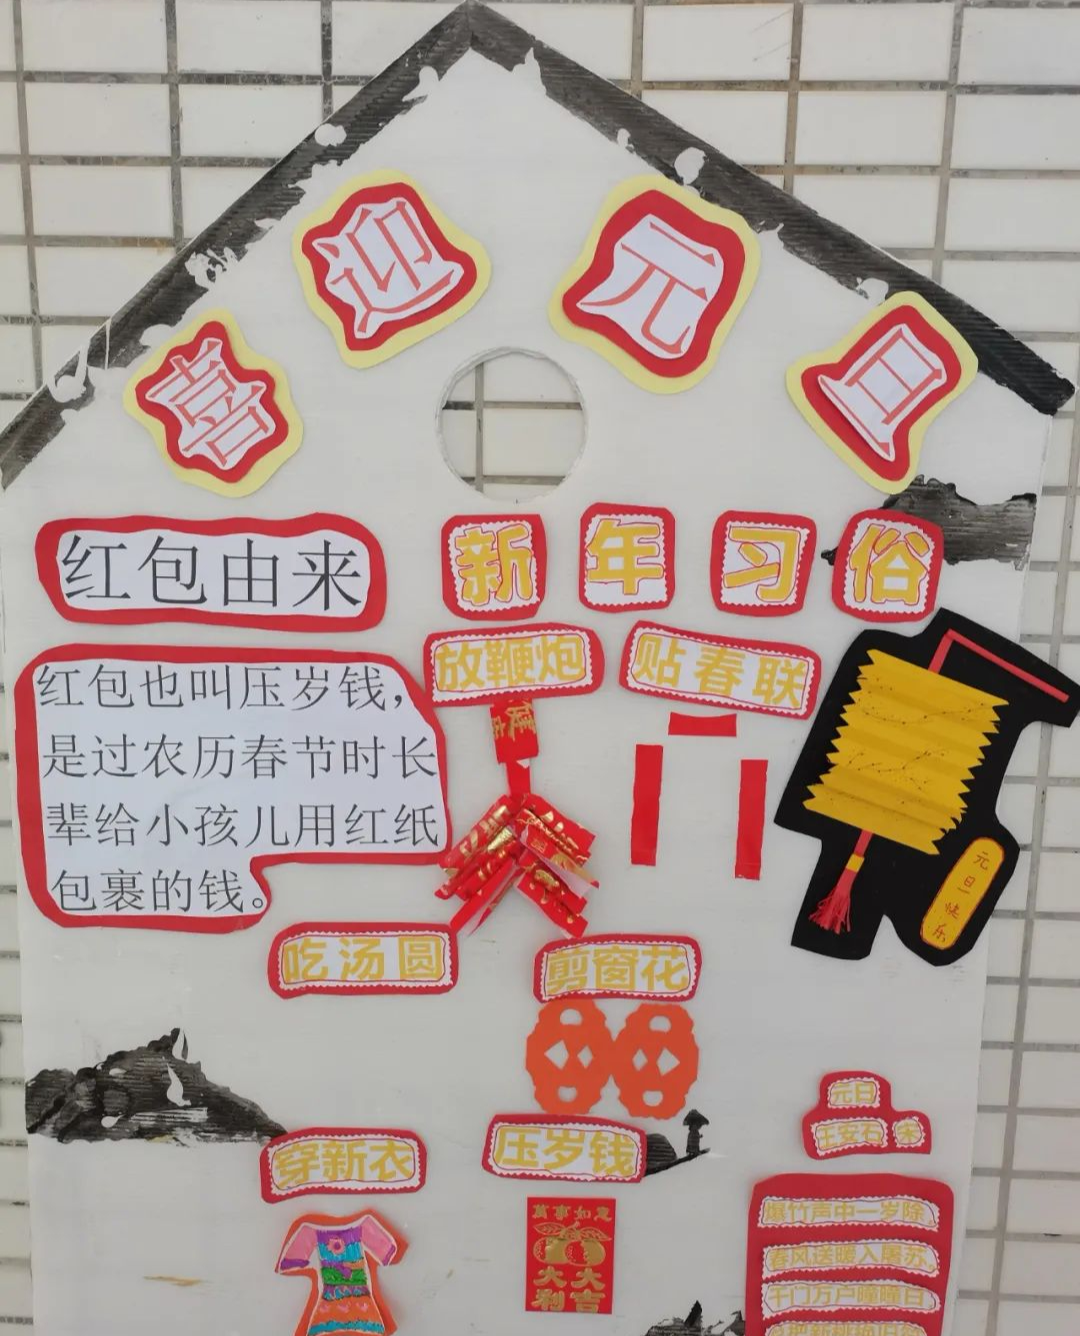 喜迎元旦
红包由来
新年习俗
红包也叫压岁钱，
是过农历春节时长
辈给小孩儿用红纸
包裹的钱。
放鞭炮
贴春联
健
元旦快乐
吃汤圆
剪窗花
穿新衣
压岁钱
萬事如意
大吉
大利
元日
王安石 宋
爆竹声中一岁除，
春风送暖入屠苏。
千门万户曈曈日，